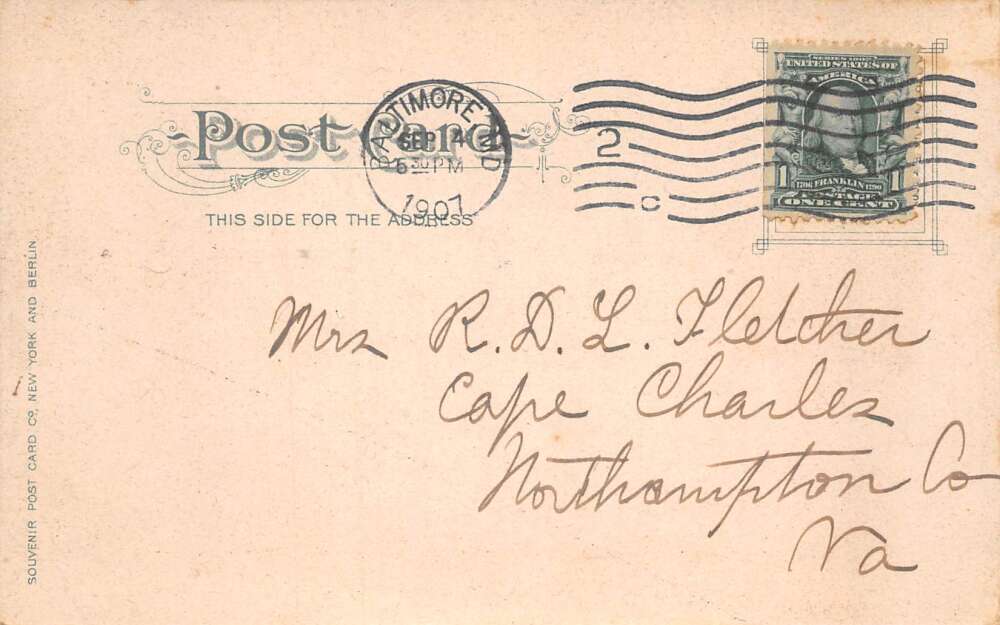 Post Card
THIS SIDE FOR THE ADDRESS
BALTIMORE, MD
SEP 4
5 30 PM
1907
2
C
SERIES 1902
UNITED STATES OF
AMERICA
1 1706 FRANKLIN 1790 1
POSTAGE
ONE CENT
Mrs R. D. L. Fletcher
Cape Charles
Northampton Co
Va
SOUVENIR POST CARD CO., NEW YORK AND BERLIN.